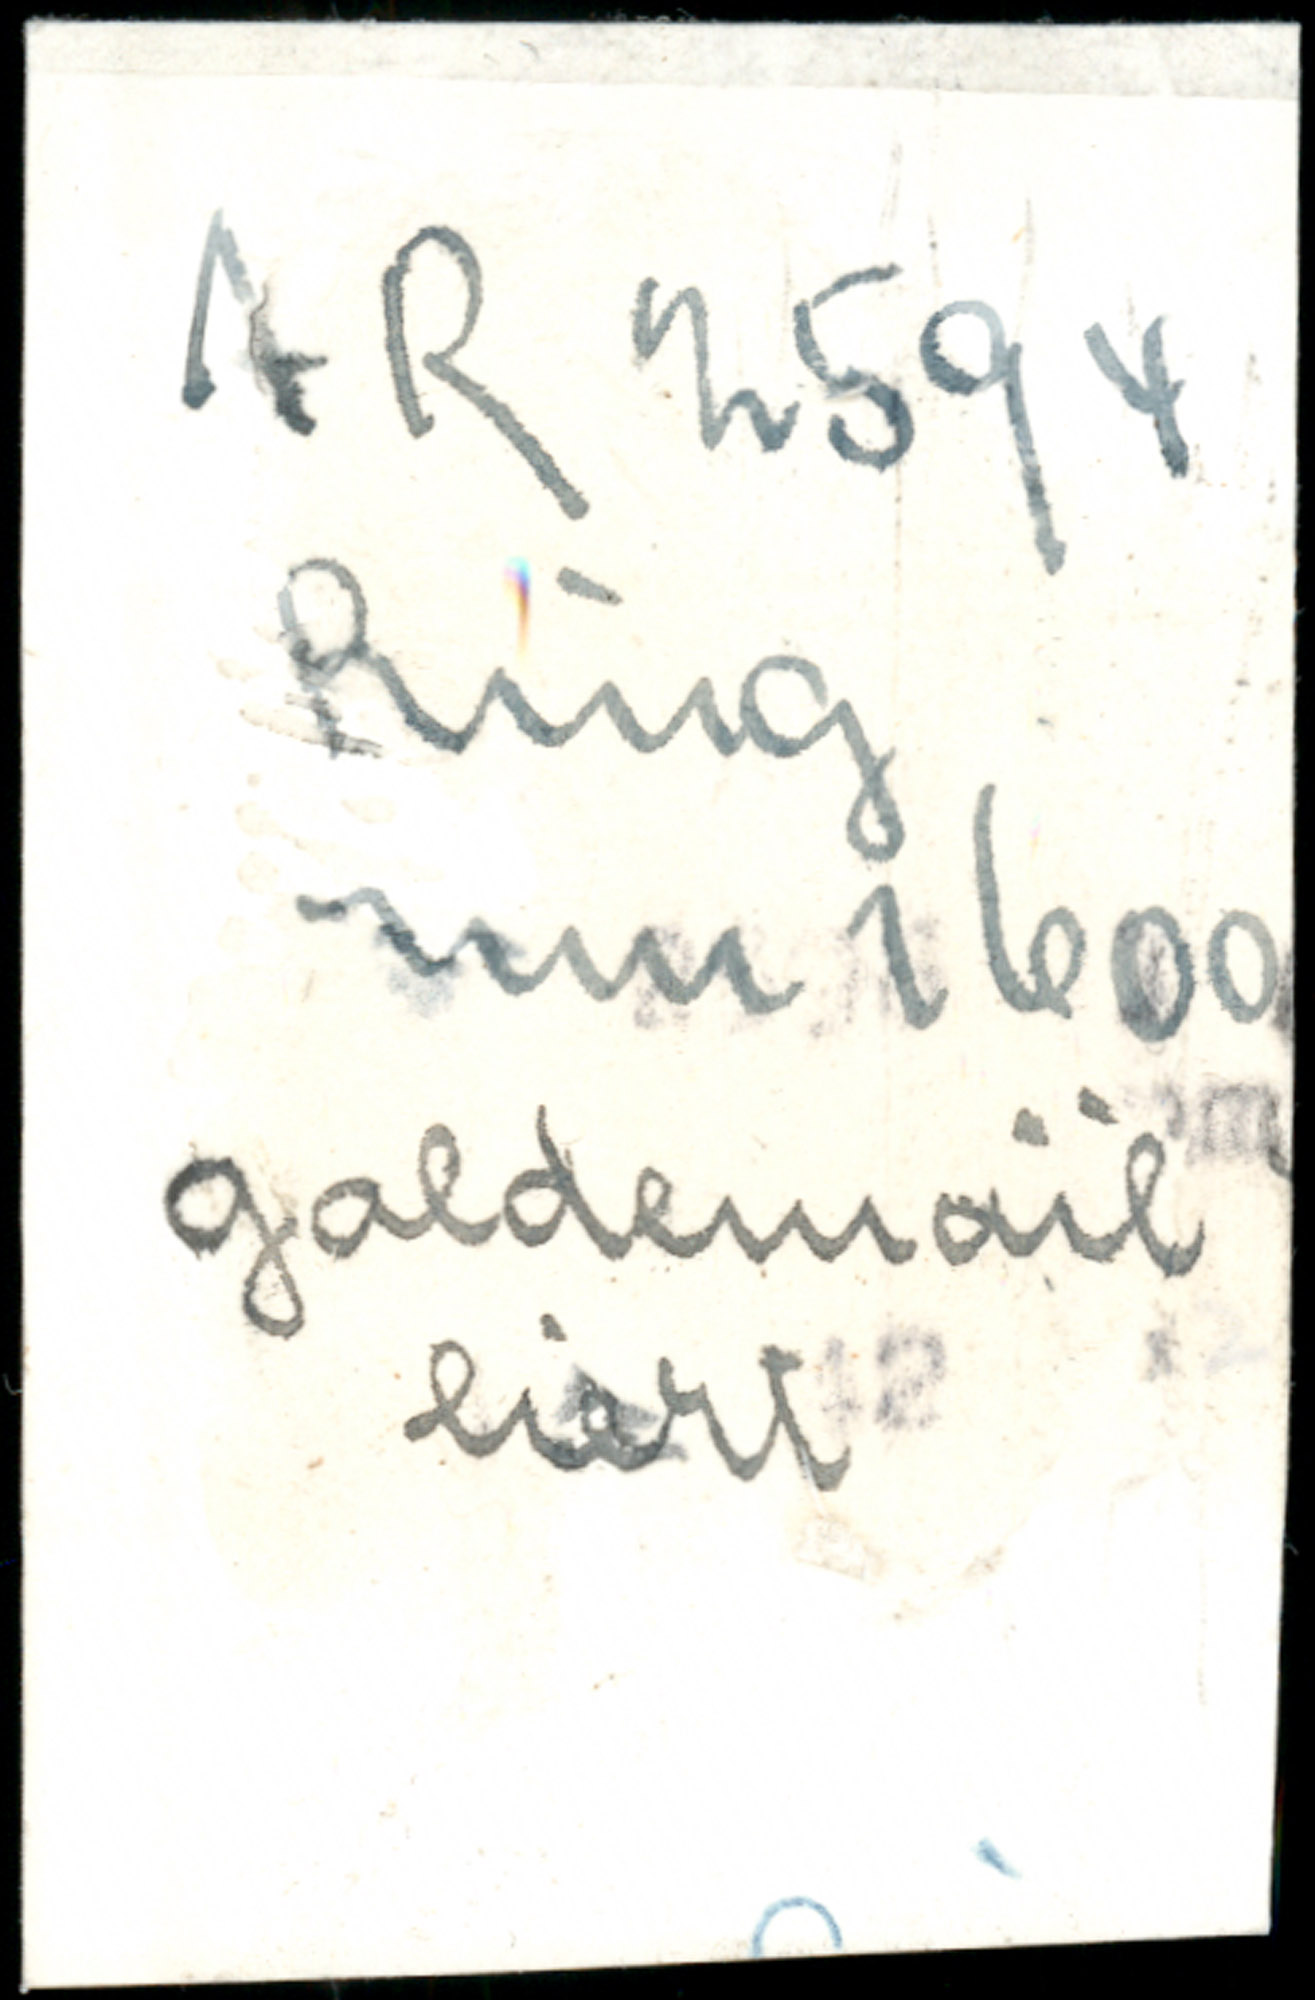 AR 2594
Ring
um 1600
goldemail
liert
12